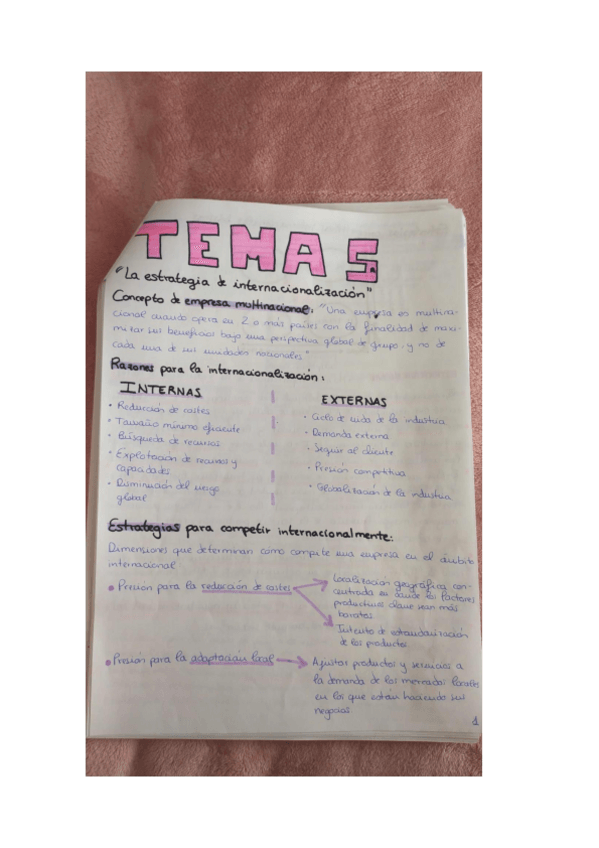 TEMA 5
"La estrategia de internacionalización"
Concepto de empresa multinacional: "Una empresa es multina-
cional cuando opera en 2 o más países con la finalidad de maxi-
mizar sus beneficios bajo una perspectiva global de grupo, y no de
cada una de sus unidades nacionales"
Razones para la internacionalización:
INTERNAS
• Reducción de costes
• Tamaño mínimo eficiente
• Búsqueda de recursos
• Explotación de recursos y
capacidades
• Disminución del riesgo
global
EXTERNAS
• Ciclo de vida de la industria
• Demanda externa
• Seguir al cliente
• Presión competitiva
• Globalización de la industria
Estrategias para competir internacionalmente:
Dimensiones que determinan cómo compite una empresa en el ámbito
internacional
• Presión para la reducción de costes
Localización geográfica con-
centrada en donde los factores
productivos clave sean más
baratos.
Intento de estandarización
de los productos.
• Presión para la adaptación local
Ajustar productos y servicios a
la demanda de los mercados locales
en los que están haciendo sus
negocios.
1